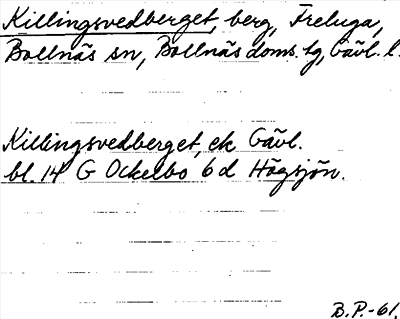 Killingsvedberget, berg, Freluga,
Bollnäs sn, Bollnäs doms. tg, Gävl. l.
Killingsvedberget, ek Gävl.
bl. 14 G Ockelbo 6 d Högsjön.
B.P.-61.